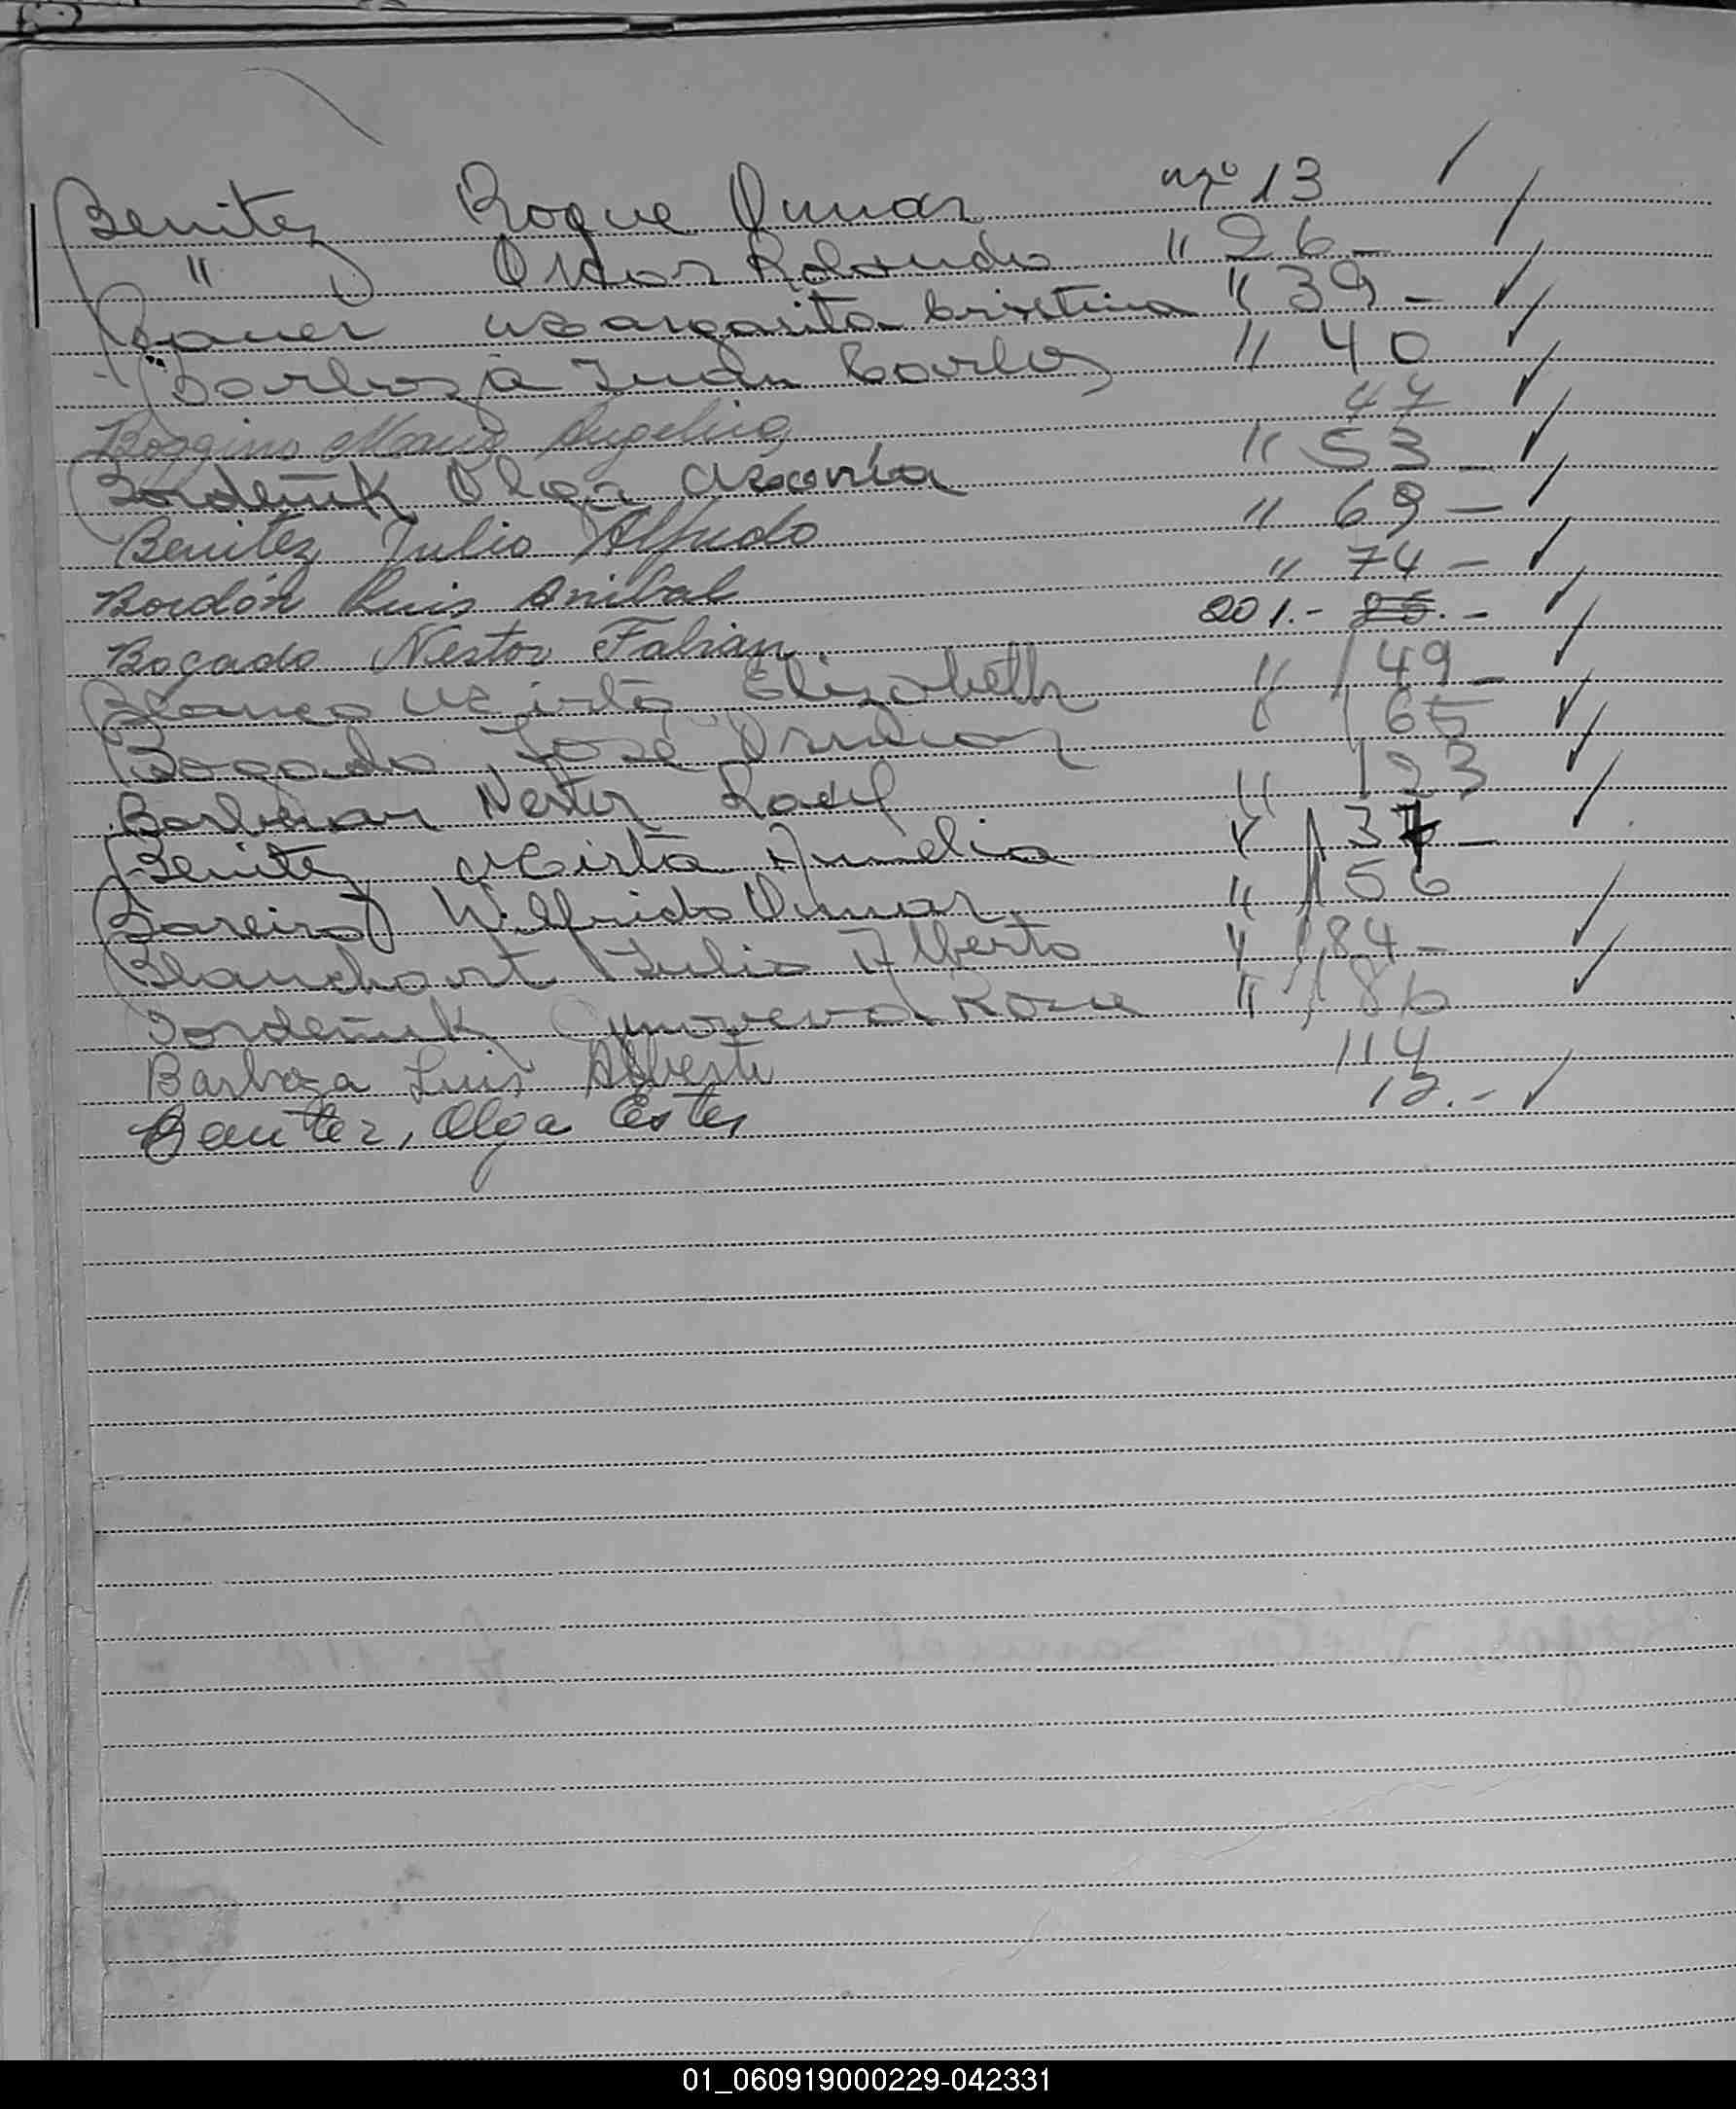 Benitez Roque Omar nº 13
" Oscar Rolando " 26 -
Bauer Margarita Cristina " 39 -
Barboza Juan Carlos " 40
Boggino Maria Angelica 47
Bordeñuk Olga " 53 -
Benitez Julio Alfredo " 69 -
Bordón Luis Anibal " 74 -
Bogado Nestor Fabian 201.- 26.-
Blanco Mirta Elizabeth " 149 -
Bogado José Osmar " 165
Nestor Raul " 123
Benitez Mirta Amelia " 137 -
Bareiro Wilfrido Omar " 156
Blanchart Julio Alberto " 184 -
Bordeñuk Genoveva Rosa " 186
Barboza Luis Alberto 114
Benitez, Olga Ester 12.-
01_060919000229-042331